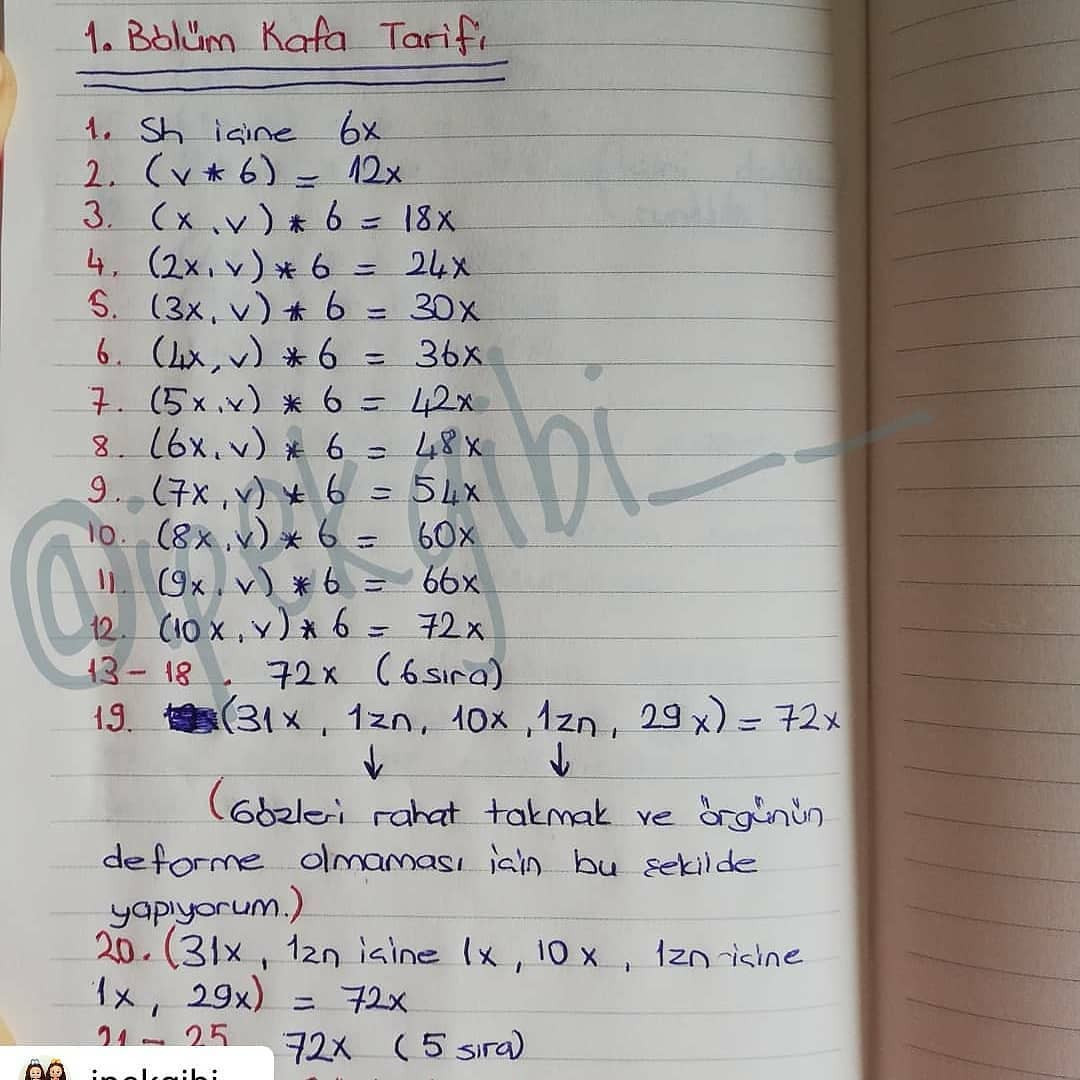 1. Bölüm Kafa Tarifi
1. Sh içine 6x
2. (v * 6) = 12x
3. (x, v) * 6 = 18x
4. (2x, v) * 6 = 24x
5. (3x, v) * 6 = 30x
6. (4x, v) * 6 = 36x
7. (5x, v) * 6 = 42x
8. (6x, v) * 6 = 48x
9. (7x, v) * 6 = 54x
10. (8x, v) * 6 = 60x
11. (9x, v) * 6 = 66x
12. (10x, v) * 6 = 72x
13-18. 72x (6 sıra)
19. (31x, 1zn, 10x, 1zn, 29x) = 72x
(Gözleri rahat takmak ve örgünün
deforme olmaması için bu şekilde
yapıyorum.)
20. (31x, 1zn içine 1x, 10x, 1zn içine
1x, 29x) = 72x
21-25 72x (5 sıra)
@ipekgibi__
ipekgibi